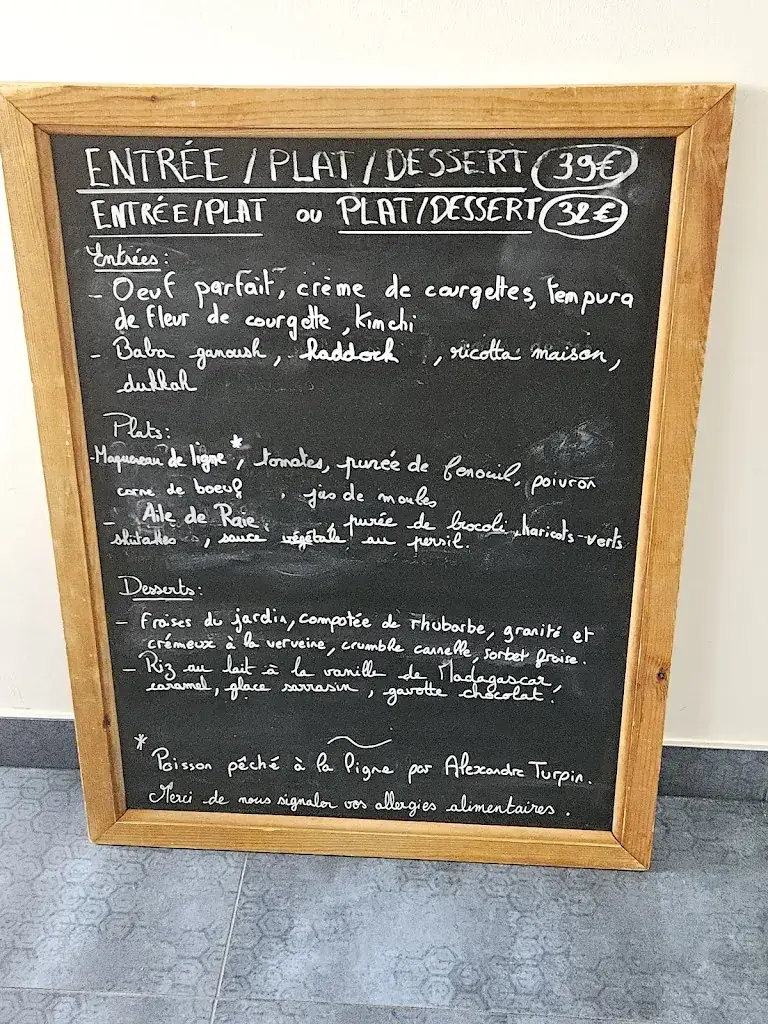 ENTRÉE / PLAT / DESSERT 39€
ENTRÉE/PLAT ou PLAT/DESSERT 32€
Entrées:
- Oeuf parfait, crème de courgettes, Tempura
de fleur de courgette, Kimchi
- Baba ganoush, haddock , ricotta maison,
dukkah
Plats:
- Maquereau de ligne*, tomates, purée de fenouil, poivron
corne de boeuf , jus de moules
- Aile de Raie , purée de brocoli, haricots-verts
shiitakes , sauce végétale au persil.
Desserts:
- Fraises du jardin, compotée de rhubarbe, granité et
crémeux à la verveine, crumble cannelle, sorbet fraise.
- Riz au lait à la vanille de Madagascar,
caramel, glace sarrasin, gavotte chocolat.
* Poisson pêché à la ligne par Alexandre Turpin.
Merci de nous signaler vos allergies alimentaires.